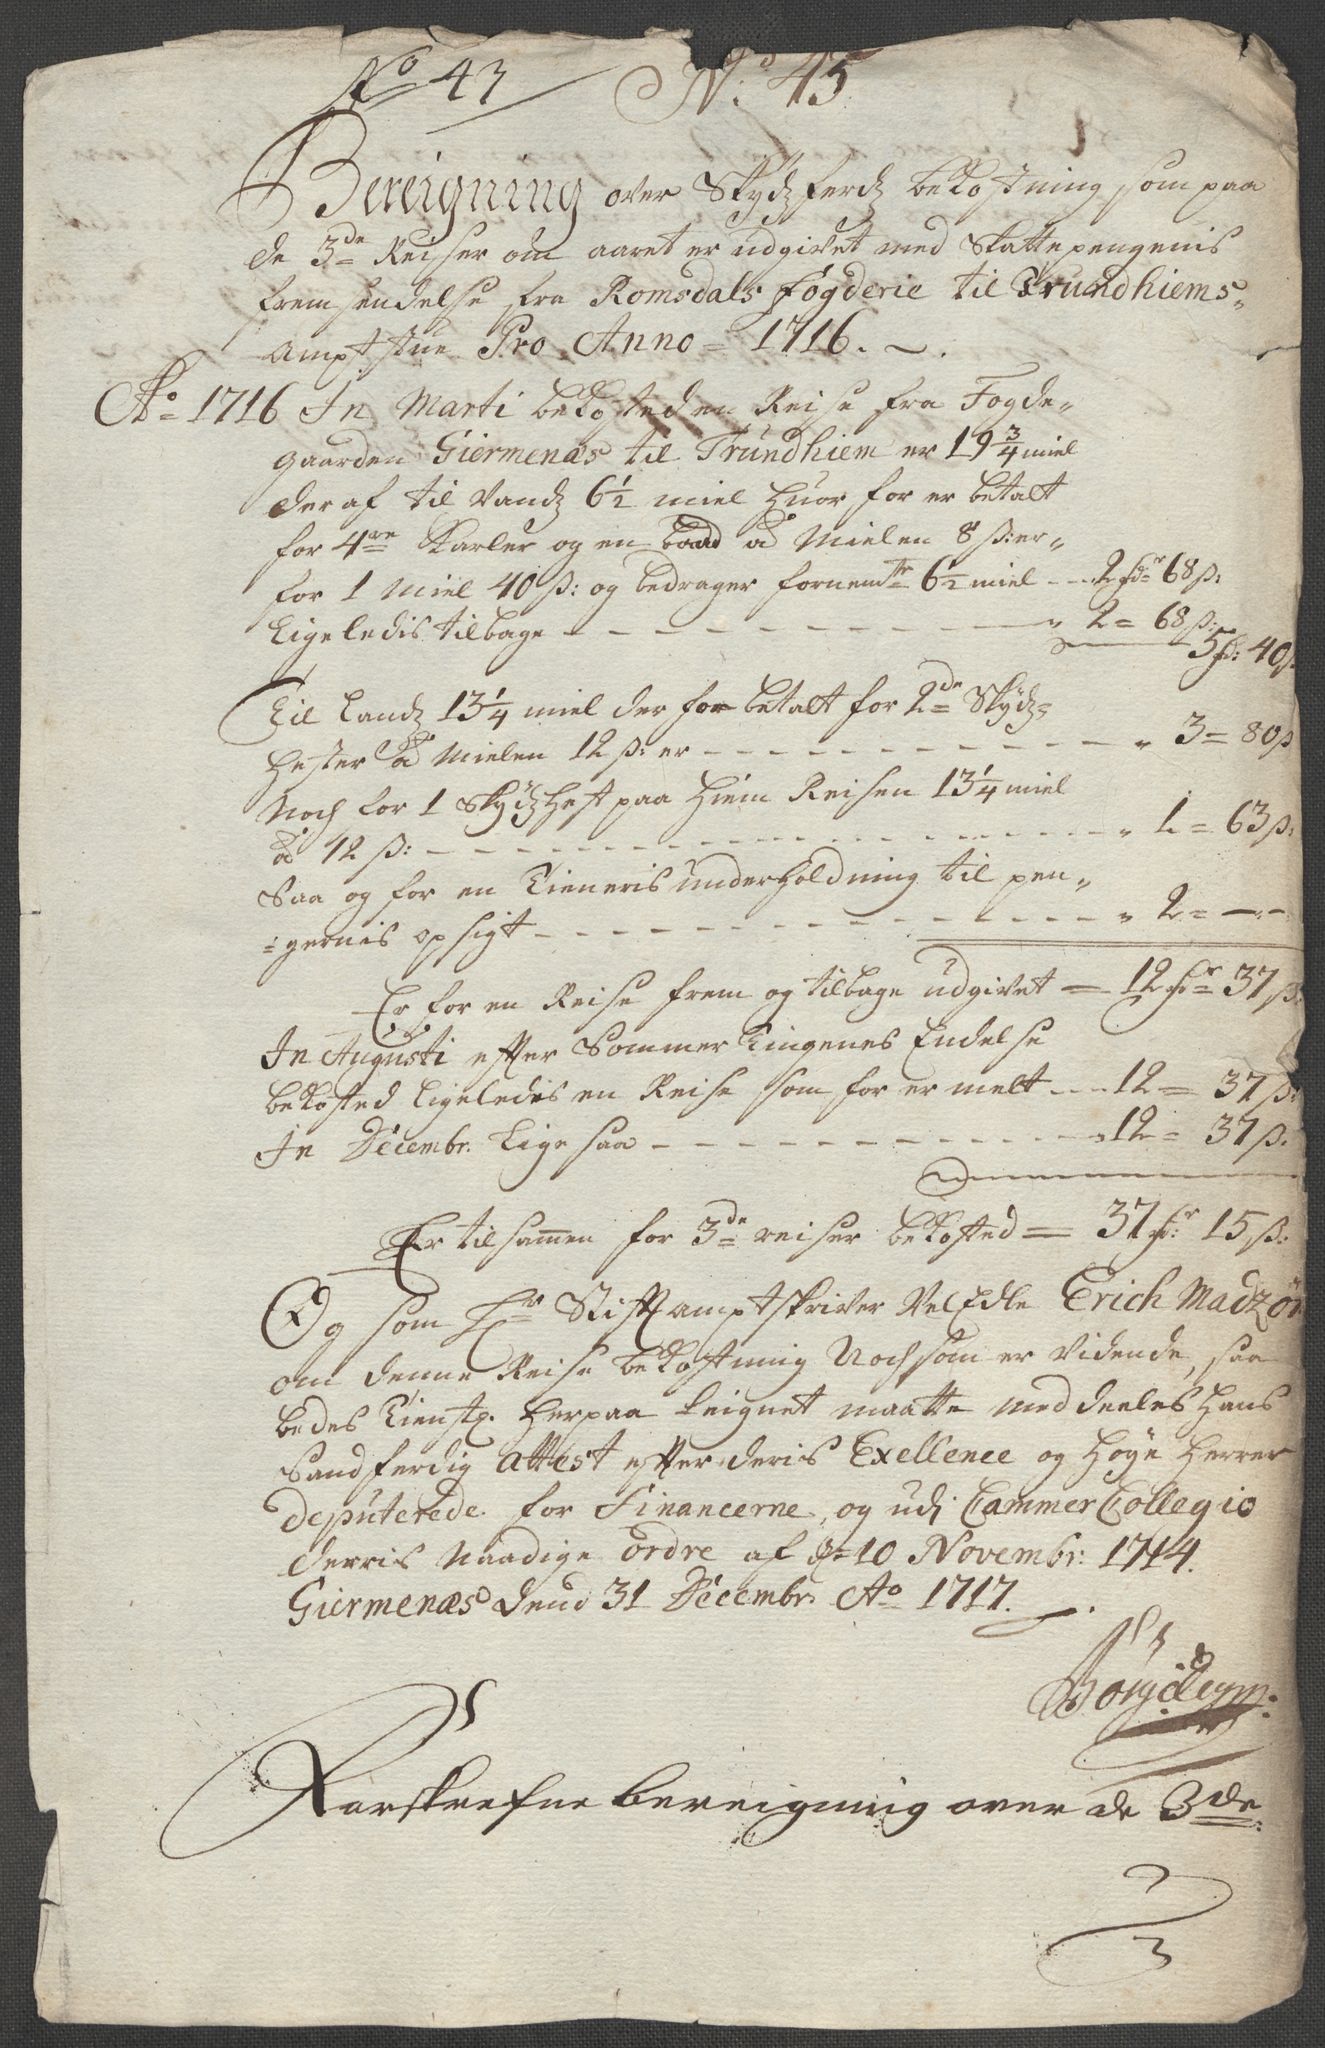 No 43 No: 45
Bereigning over Skydtzferdtz bekostning som paa
de 3de Reiser om aaret er udgivet med Skattepengenis
fremsendelse fra Romsdals Fogderie til Trundhiems
Amptstue Pro Anno = 1716.
Ao 1716 In Marti bekosted en Reise fra Fogde-
gaarden Giermenæs til Trundhiem er 19 3/4 miel
der af til Vandz 6 1/2 miel huor for er betalt
for 4re Karler og en baad á Mielen 8 ß: er
for 1 Miel 40 ß: og bedrager fornemte 6 1/2 miel - - 2 rdr 68 ß:
Ligeledis tilbage - - - - - 2 = 68 ß:
5 rd: 40 ß
Til Landz 13 1/4 miel der for betalt for 2de Skydz=
hester á Mielen 12 ß: er - - - - - 3 = 80 ß
Noch for 1 Skydzhest paa Hiem Reisen 13 1/4 miel
á 12 ß: - - - - - 1 = 63 ß:
Saa og for en Tieneris underholdning til pen-
gernis opsigt - - - - - 2 = -
Er for en Reise frem og tilbage udgivet = 12 rdr 37 ß:
In Augusti efter Sommer Tingenes Endelse
bekosted Ligeledis en Reise som for er melt - - 12 = 37 ß:
In Decembr. Lige saa - - - - - 12 = 37 ß.
Er tilsammen for 3de reiser bekosted = 37 rdr: 15 ß:
Og som Hr Stiftamptskriver VelEdle Erich Madzøn
om denne Reise bekostning Nochsom er Vidende, saa
bedes tienstl. herpaa teignet maatte meddeeles Hans
Sandferdig Attest efter deris Exellence og Høye Herrer
deputerede for Financerne, og udi Cammer Collegio
derris Naadige ordre af d= 10 Novembr: 1714.
Giermenæs dend 31 Decembr. Ao 1717.
Forskrefne bereigning over de 3de